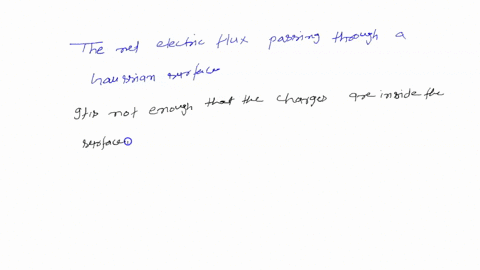 The net electric flux passing through a
Gaussian surface
It is not enough that the charges are inside the
surface.